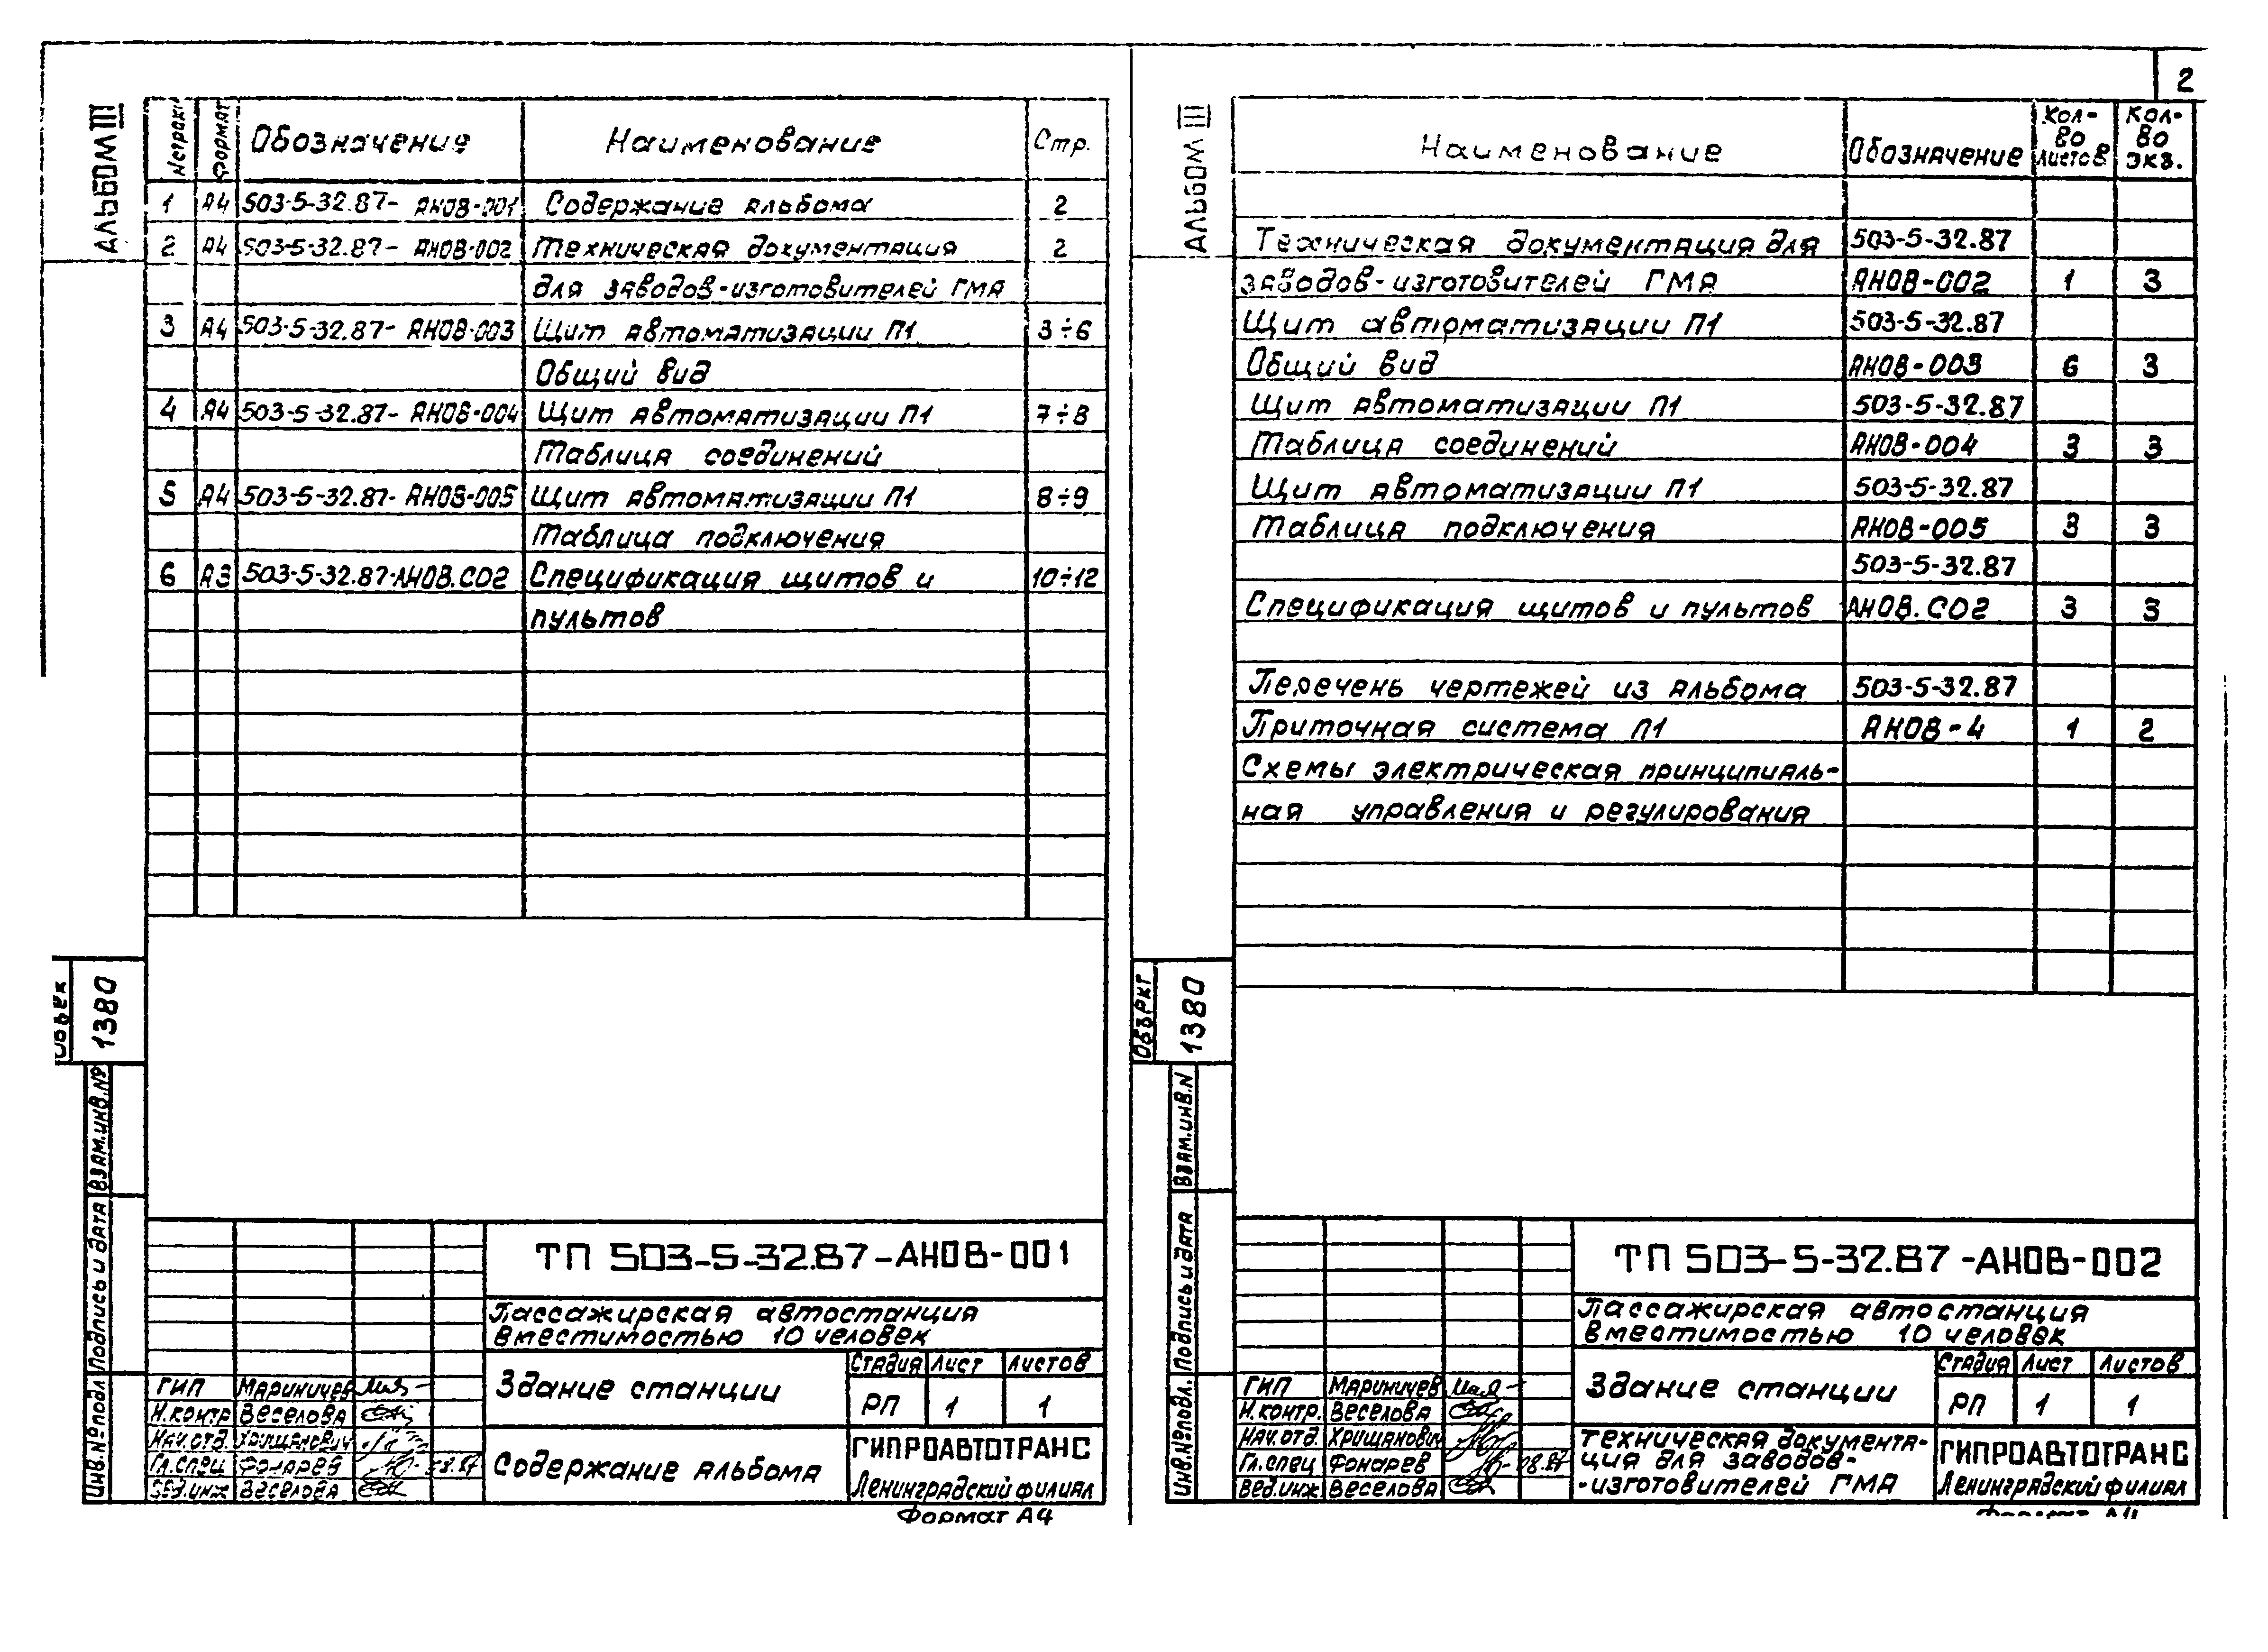 2
АЛЬБОМ III
№ строки Формат Обозначение Наименование Стр.
1 А4 503-5-32.87- АНОВ-001 Содержание альбома 2
2 А4 503-5-32.87- АНОВ-002 Техническая документация 2
для заводов-изготовителей ГМА
3 А4 503-5-32.87- АНОВ-003 Щит автоматизации П1 3÷6
Общий вид
4 А4 503-5-32.87- АНОВ-004 Щит автоматизации П1 7÷8
Таблица соединений
5 А4 503-5-32.87- АНОВ-005 Щит автоматизации П1 8÷9
Таблица подключения
6 А3 503-5-32.87-АНОВ.СО2 Спецификация щитов и 10÷12
пультов
1380
Взам.инв.№
Подпись и дата
Инв.№подл
ТП 503-5-32.87-АНОВ-001
Пассажирская автостанция
вместимостью 10 человек
Здание станции
Стадия Лист Листов
РП 1 1
ГИП Мариничев
Н.контр Веселова
Нач.отд. Хрищанович
Гл.спец Фонарев
Вед.инж Веселова
Содержание альбома
ГИПРОАВТОТРАНС
Ленинградский филиал
Формат А4
АЛЬБОМ III
Наименование Обозначение Кол-во листов Кол-во экз.
Техническая документация для 503-5-32.87
заводов-изготовителей ГМА АНОВ-002 1 3
Щит автоматизации П1 503-5-32.87
Общий вид АНОВ-003 6 3
Щит автоматизации П1 503-5-32.87
Таблица соединений АНОВ-004 3 3
Щит автоматизации П1 503-5-32.87
Таблица подключения АНОВ-005 3 3
503-5-32.87
Спецификация щитов и пультов АНОВ.СО2 3 3
Перечень чертежей из альбома 503-5-32.87
Приточная система П1 АНОВ-4 1 2
Схемы электрическая принципиаль-
ная управления и регулирования
Объект
1380
Взам.инв.N
Подпись и дата
Инв.№подл.
ТП 503-5-32.87-АНОВ-002
Пассажирская автостанция
вместимостью 10 человек
Здание станции
Стадия Лист Листов
РП 1 1
ГИП Мариничев
Н.контр. Веселова
Нач.отд. Хрищанович
Гл.спец Фонарев 08.87
Вед.инж Веселова
Техническая документа-
ция для заводов-
-изготовителей ГМА
ГИПРОАВТОТРАНС
Ленинградский филиал
Формат А4